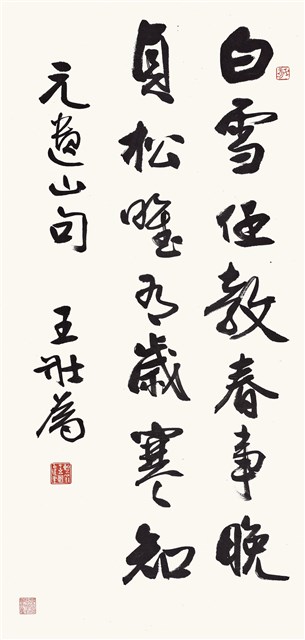 白雪任教春事晚
貞松唯有歲寒知
元遺山句 王壯為